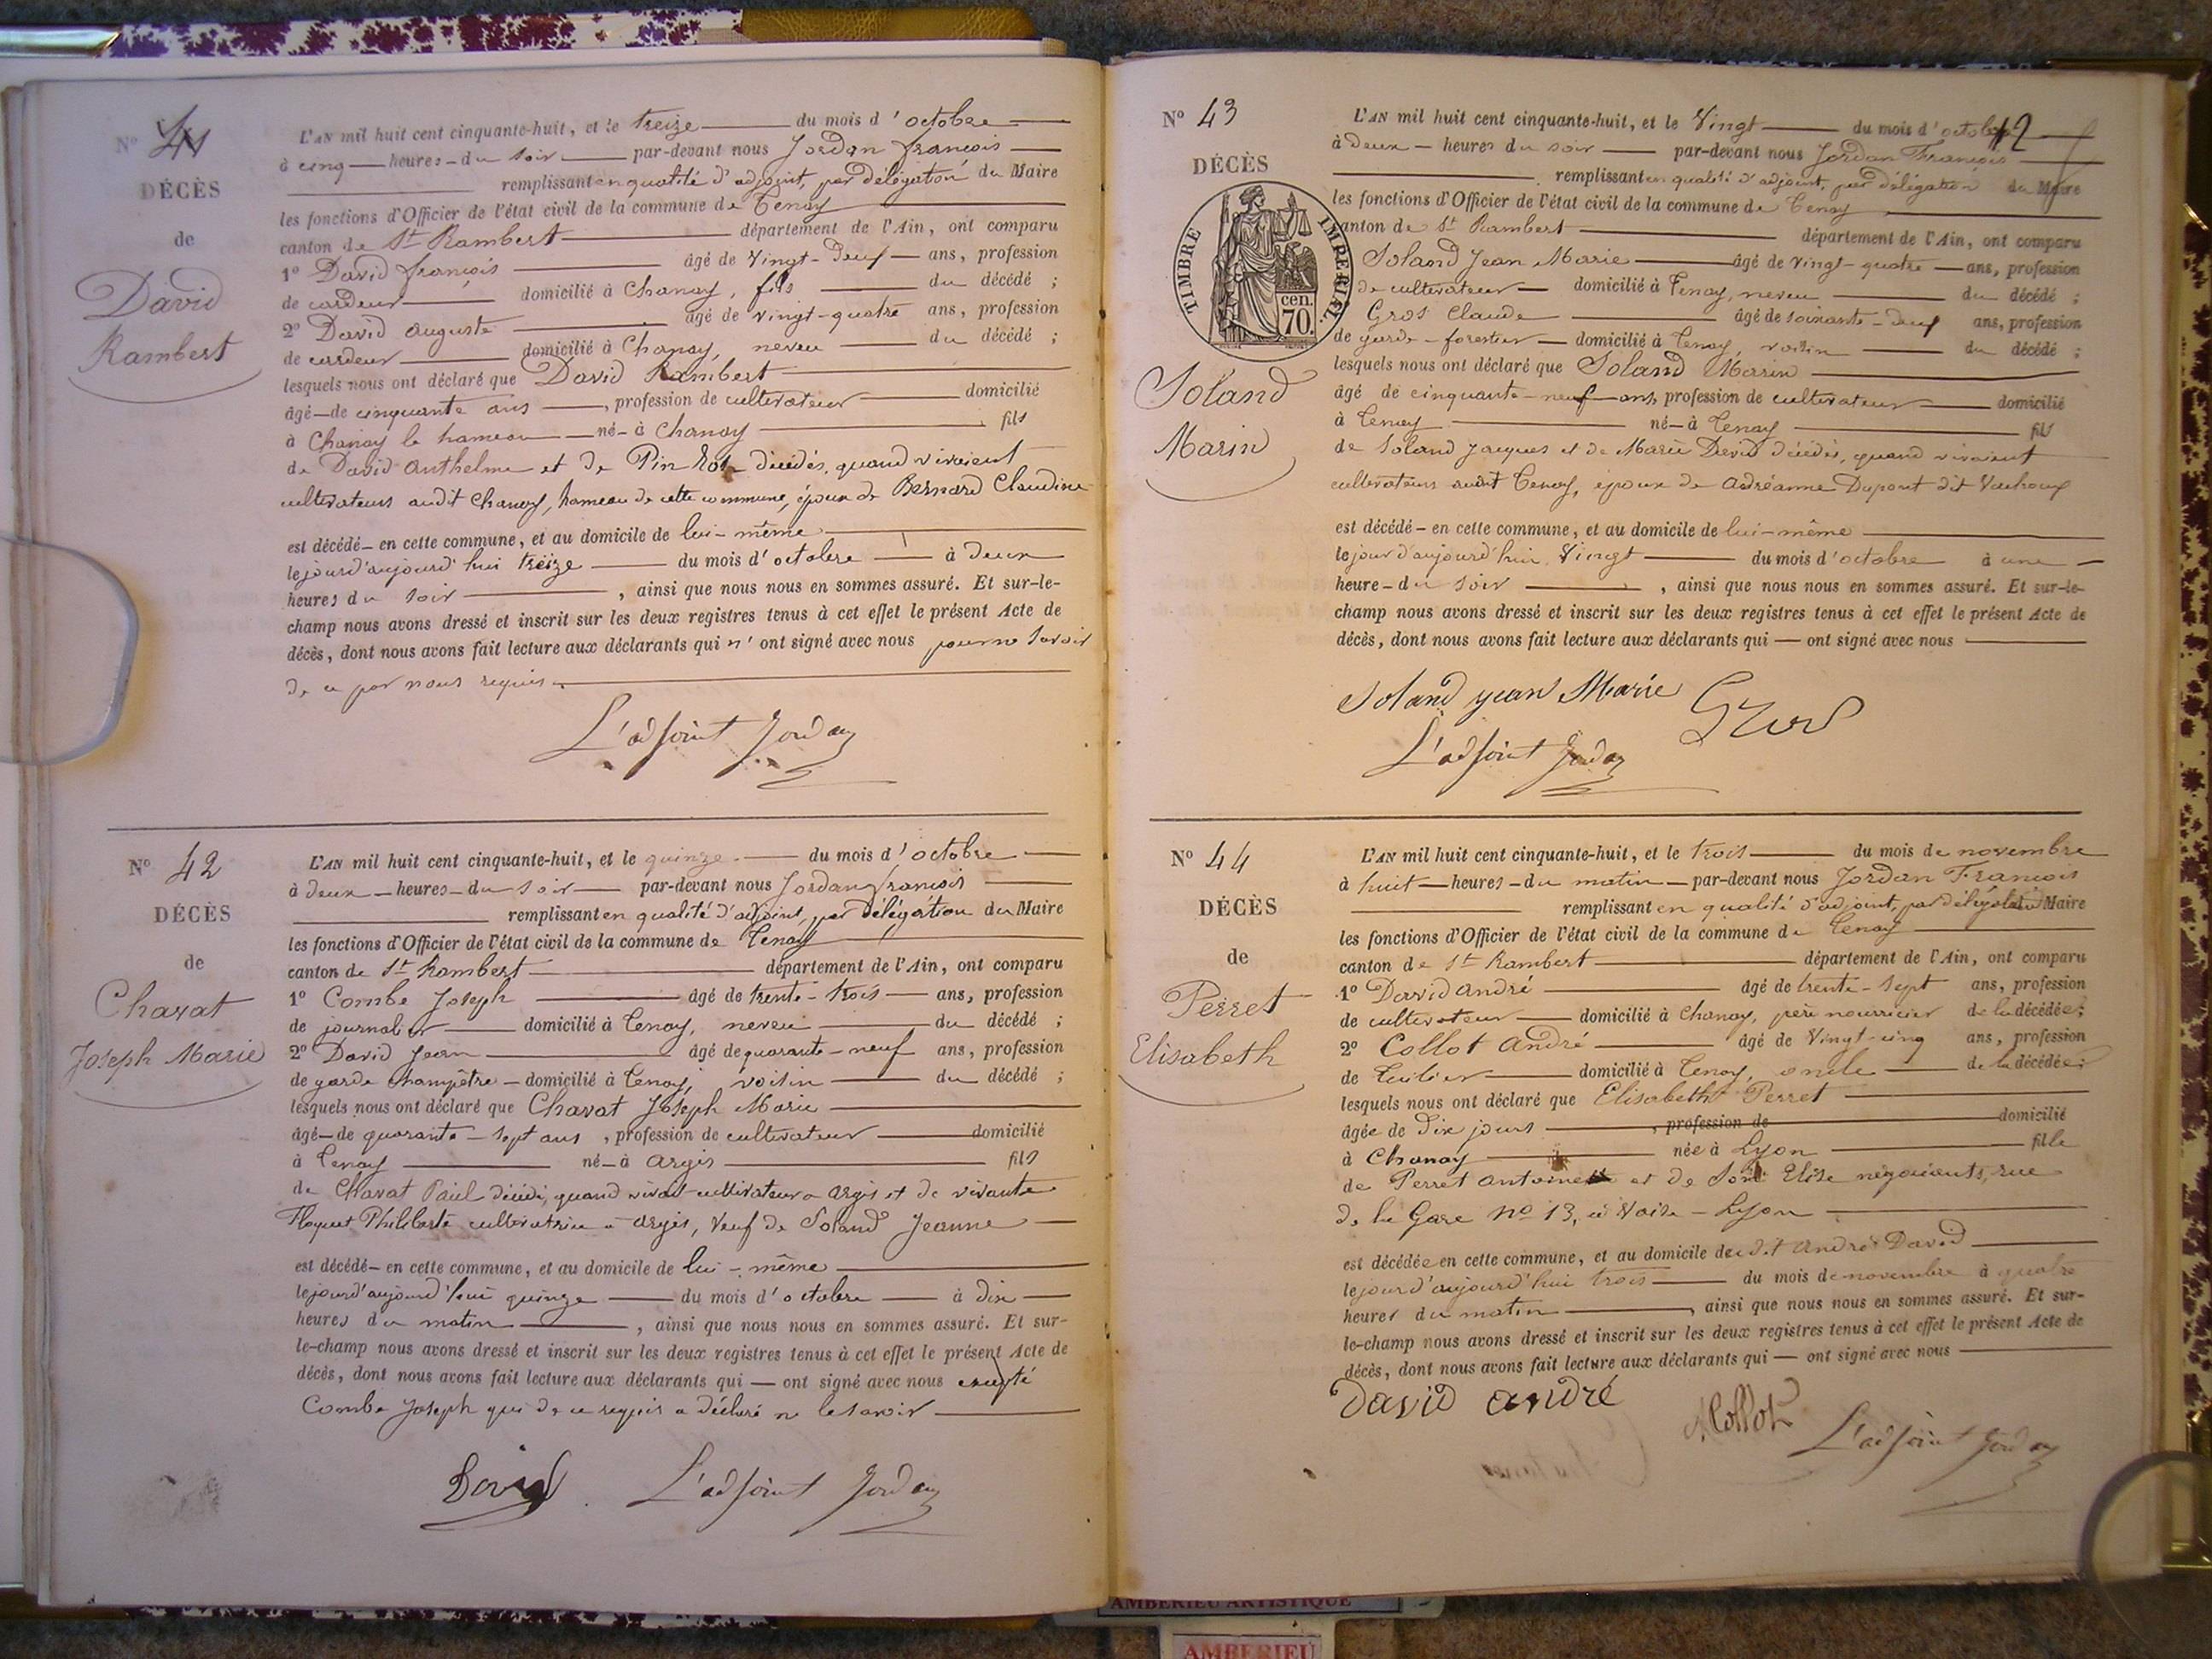 N° 41
DÉCÈS
de
David
Rambert
L'AN mil huit cent cinquante-huit, et le treize du mois d'octobre
à cinq heures du soir par-devant nous Jordan françois
remplissant en qualité d'adjoint, par délégation du Maire
les fonctions d'Officier de l'état civil de la commune de Tenay
canton de St Rambert département de l'Ain, ont comparu
1° David françois âgé de vingt-deux ans, profession
de cardeur domicilié à Chanay, fils du décédé ;
2° David auguste âgé de vingt-quatre ans, profession
de cardeur domicilié à Chanay, neveu du décédé ;
lesquels nous ont déclaré que David Rambert
âgé de cinquante ans, profession de cultivateur domicilié
à Chanay le hameau né à Chanay fils
de David Anthelme et de Pin décédés, quand vivaient
cultivateurs audit Chanay, hameau de cette commune, époux de Bernard Claudine
est décédé en cette commune, et au domicile de lui-même
le jour d'aujourd'hui treize du mois d'octobre à deux
heures du soir, ainsi que nous nous en sommes assuré. Et sur-le-
champ nous avons dressé et inscrit sur les deux registres tenus à cet effet le présent Acte de
décès, dont nous avons fait lecture aux déclarants qui n'ont signé avec nous pour ne savoir
de ce par nous requis.
L'adjoint Jordan
N° 42
DÉCÈS
de
Chavat
Joseph Marie
L'AN mil huit cent cinquante-huit, et le quinze du mois d'octobre
à deux heures du soir par-devant nous Jordan françois
remplissant en qualité d'adjoint, par délégation du Maire
les fonctions d'Officier de l'état civil de la commune de Tenay
canton de St Rambert département de l'Ain, ont comparu
1° Combe Joseph âgé de trente-trois ans, profession
de journalier domicilié à Tenay, neveu du décédé ;
2° David Jean âgé de quarante-neuf ans, profession
de garde champêtre domicilié à Tenay, voisin du décédé ;
lesquels nous ont déclaré que Chavat Joseph Marie
âgé de quarante-sept ans, profession de cultivateur domicilié
à Tenay né à Argis fils
de Chavat Paul décédé, quand vivait cultivateur a Argis et de vivante
Philiberte cultivatrice a Argis, Veuf de Soland Jeanne
est décédé en cette commune, et au domicile de lui-même
le jour d'aujourd'hui quinze du mois d'octobre à dix
heures du matin, ainsi que nous nous en sommes assuré. Et sur-
le-champ nous avons dressé et inscrit sur les deux registres tenus à cet effet le présent Acte de
décès, dont nous avons fait lecture aux déclarants qui ont signé avec nous excepté
Combe Joseph qui de ce requis a déclaré ne le savoir
David L'adjoint Jordan
N° 43
DÉCÈS
TIMBRE IMPÉRIAL
cen.
70.
Soland
Marin
12
L'AN mil huit cent cinquante-huit, et le Vingt du mois d'octobre
à deux heures du soir par-devant nous Jordan François
remplissant en qualité d'adjoint, par délégation du Maire
les fonctions d'Officier de l'état civil de la commune de Tenay
canton de St Rambert département de l'Ain, ont comparu
Soland Jean Marie âgé de vingt-quatre ans, profession
de cultivateur domicilié à Tenay, neveu du décédé ;
Gros Claude âgé de soixante-deux ans, profession
de garde-forestier domicilié à Tenay, voisin du décédé ;
lesquels nous ont déclaré que Soland Marin
âgé de cinquante-neuf ans, profession de cultivateur domicilié
à Tenay né à Tenay fils
de Soland Jacques et de Marie David décédés, quand vivaient
cultivateurs audit Tenay, époux de Adréanne Dupont dit
est décédé en cette commune, et au domicile de lui-même
le jour d'aujourd'hui Vingt du mois d'octobre à une
heure du soir, ainsi que nous nous en sommes assuré. Et sur-le-
champ nous avons dressé et inscrit sur les deux registres tenus à cet effet le présent Acte de
décès, dont nous avons fait lecture aux déclarants qui ont signé avec nous
Soland jean Marie Gros
L'adjoint Jordan
N° 44
DÉCÈS
de
Perret
Elisabeth
L'AN mil huit cent cinquante-huit, et le trois du mois de novembre
à huit heures du matin par-devant nous Jordan François
remplissant en qualité d'adjoint, par délégation du Maire
les fonctions d'Officier de l'état civil de la commune de Tenay
canton de St Rambert département de l'Ain, ont comparu
1° David André âgé de trente-sept ans, profession
de cultivateur domicilié à Chanay, père nourricier de la décédée;
2° Collot André âgé de Vingt-cinq ans, profession
de domicilié à Tenay, oncle de la décédée;
lesquels nous ont déclaré que Elisabeth Perret
âgée de dix jours, profession de domicilié
à Chanay née à Lyon fille
de Perret Antoine et de Elise négociants, rue
de la Gare N° 13, à Vaise-Lyon
est décédée en cette commune, et au domicile dudit André David
le jour d'aujourd'hui trois du mois de novembre à quatre
heures du matin, ainsi que nous nous en sommes assuré. Et sur-
le-champ nous avons dressé et inscrit sur les deux registres tenus à cet effet le présent Acte de
décès, dont nous avons fait lecture aux déclarants qui ont signé avec nous
David andré A Collot L'adjoint Jordan
AMBERIEU ARTISTIQUE
AMBERIEU